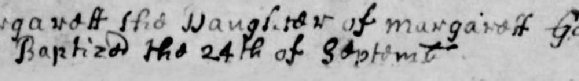 rgarett the Daughter of Margarett Go
Baptized the 24th of Septemb